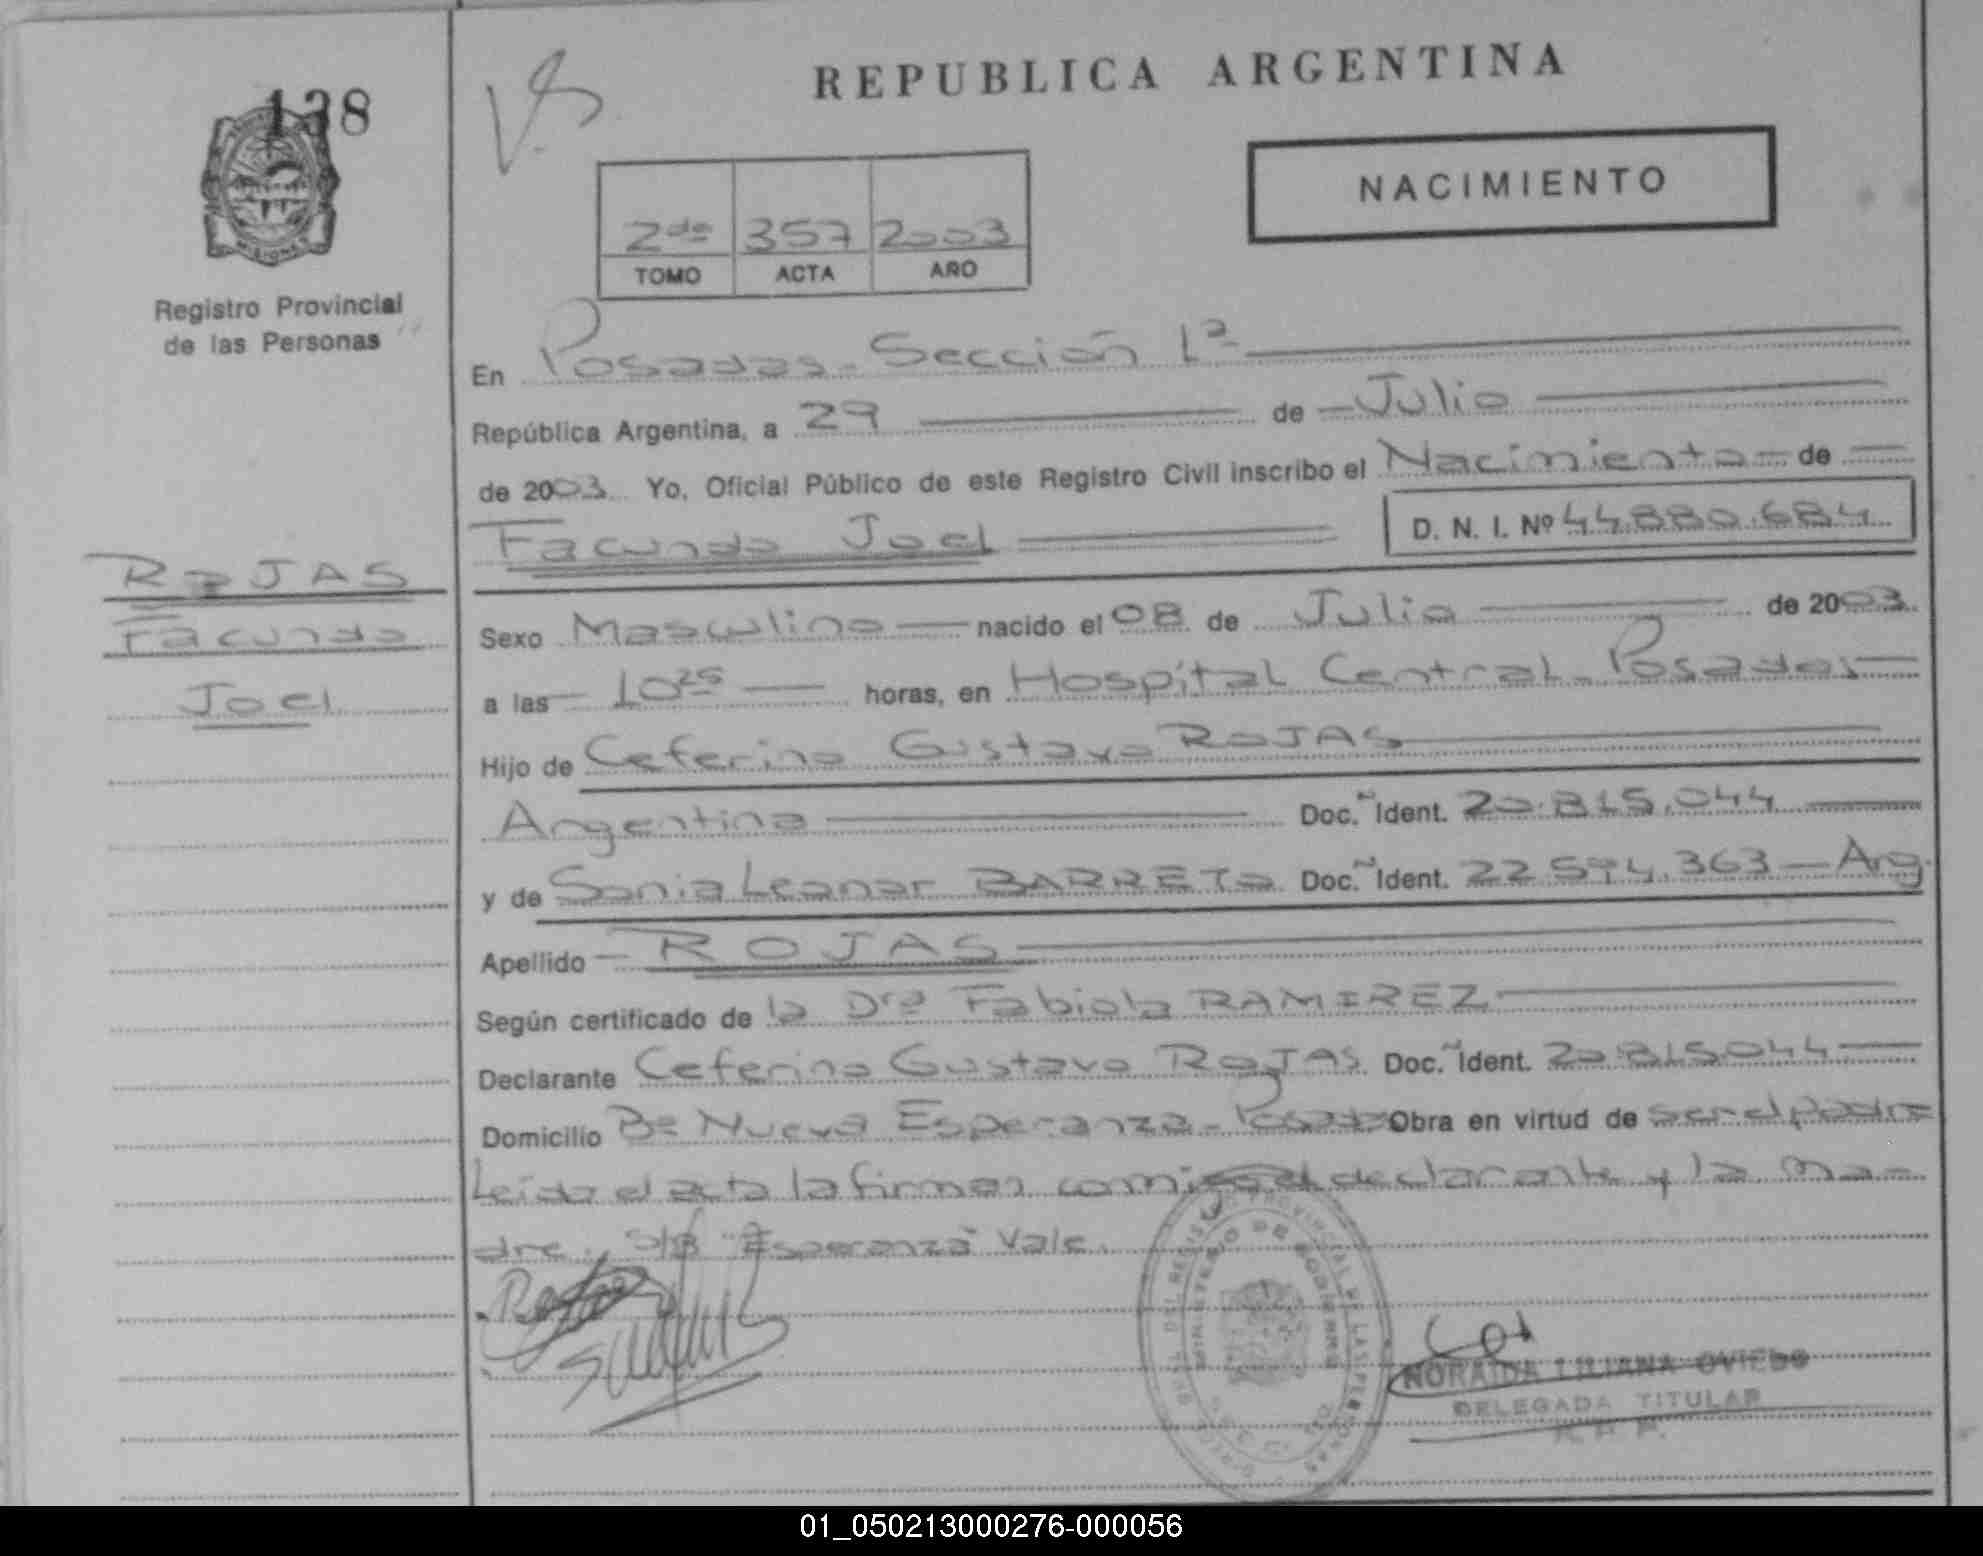 138
REPUBLICA ARGENTINA
NACIMIENTO
2do 357 2003
TOMO ACTA AÑO
Registro Provincial
de las Personas
En Posadas - Sección 1ª
República Argentina, a 29 de Julio
de 2003 Yo, Oficial Público de este Registro Civil inscribo el Nacimiento de
Facundo Joel D. N. I. Nº 44.880.684
ROJAS
Facundo
Joel
Sexo Masculino nacido el 08 de Julio de 2003
a las 10 25 horas, en Hospital Central - Posadas
Hijo de Ceferino Gustavo ROJAS
Argentina Doc. Ident. 20.815.044
y de Sonia Leonor BARRETO Doc. Ident. 22.594.363 - Arg.
Apellido ROJAS
Según certificado de la Dra Fabiola RAMIREZ
Declarante Ceferino Gustavo ROJAS Doc. Ident. 20.815.044
Domicilio Bº Nueva Esperanza - Posadas Obra en virtud de ser el padre
Leída el acta la firman conmigo el declarante y la ma-
dre. S/B "Esperanza" Vale.
NORAIDA LILIANA OVIEDO
DELEGADA TITULAR
01_050213000276-000056